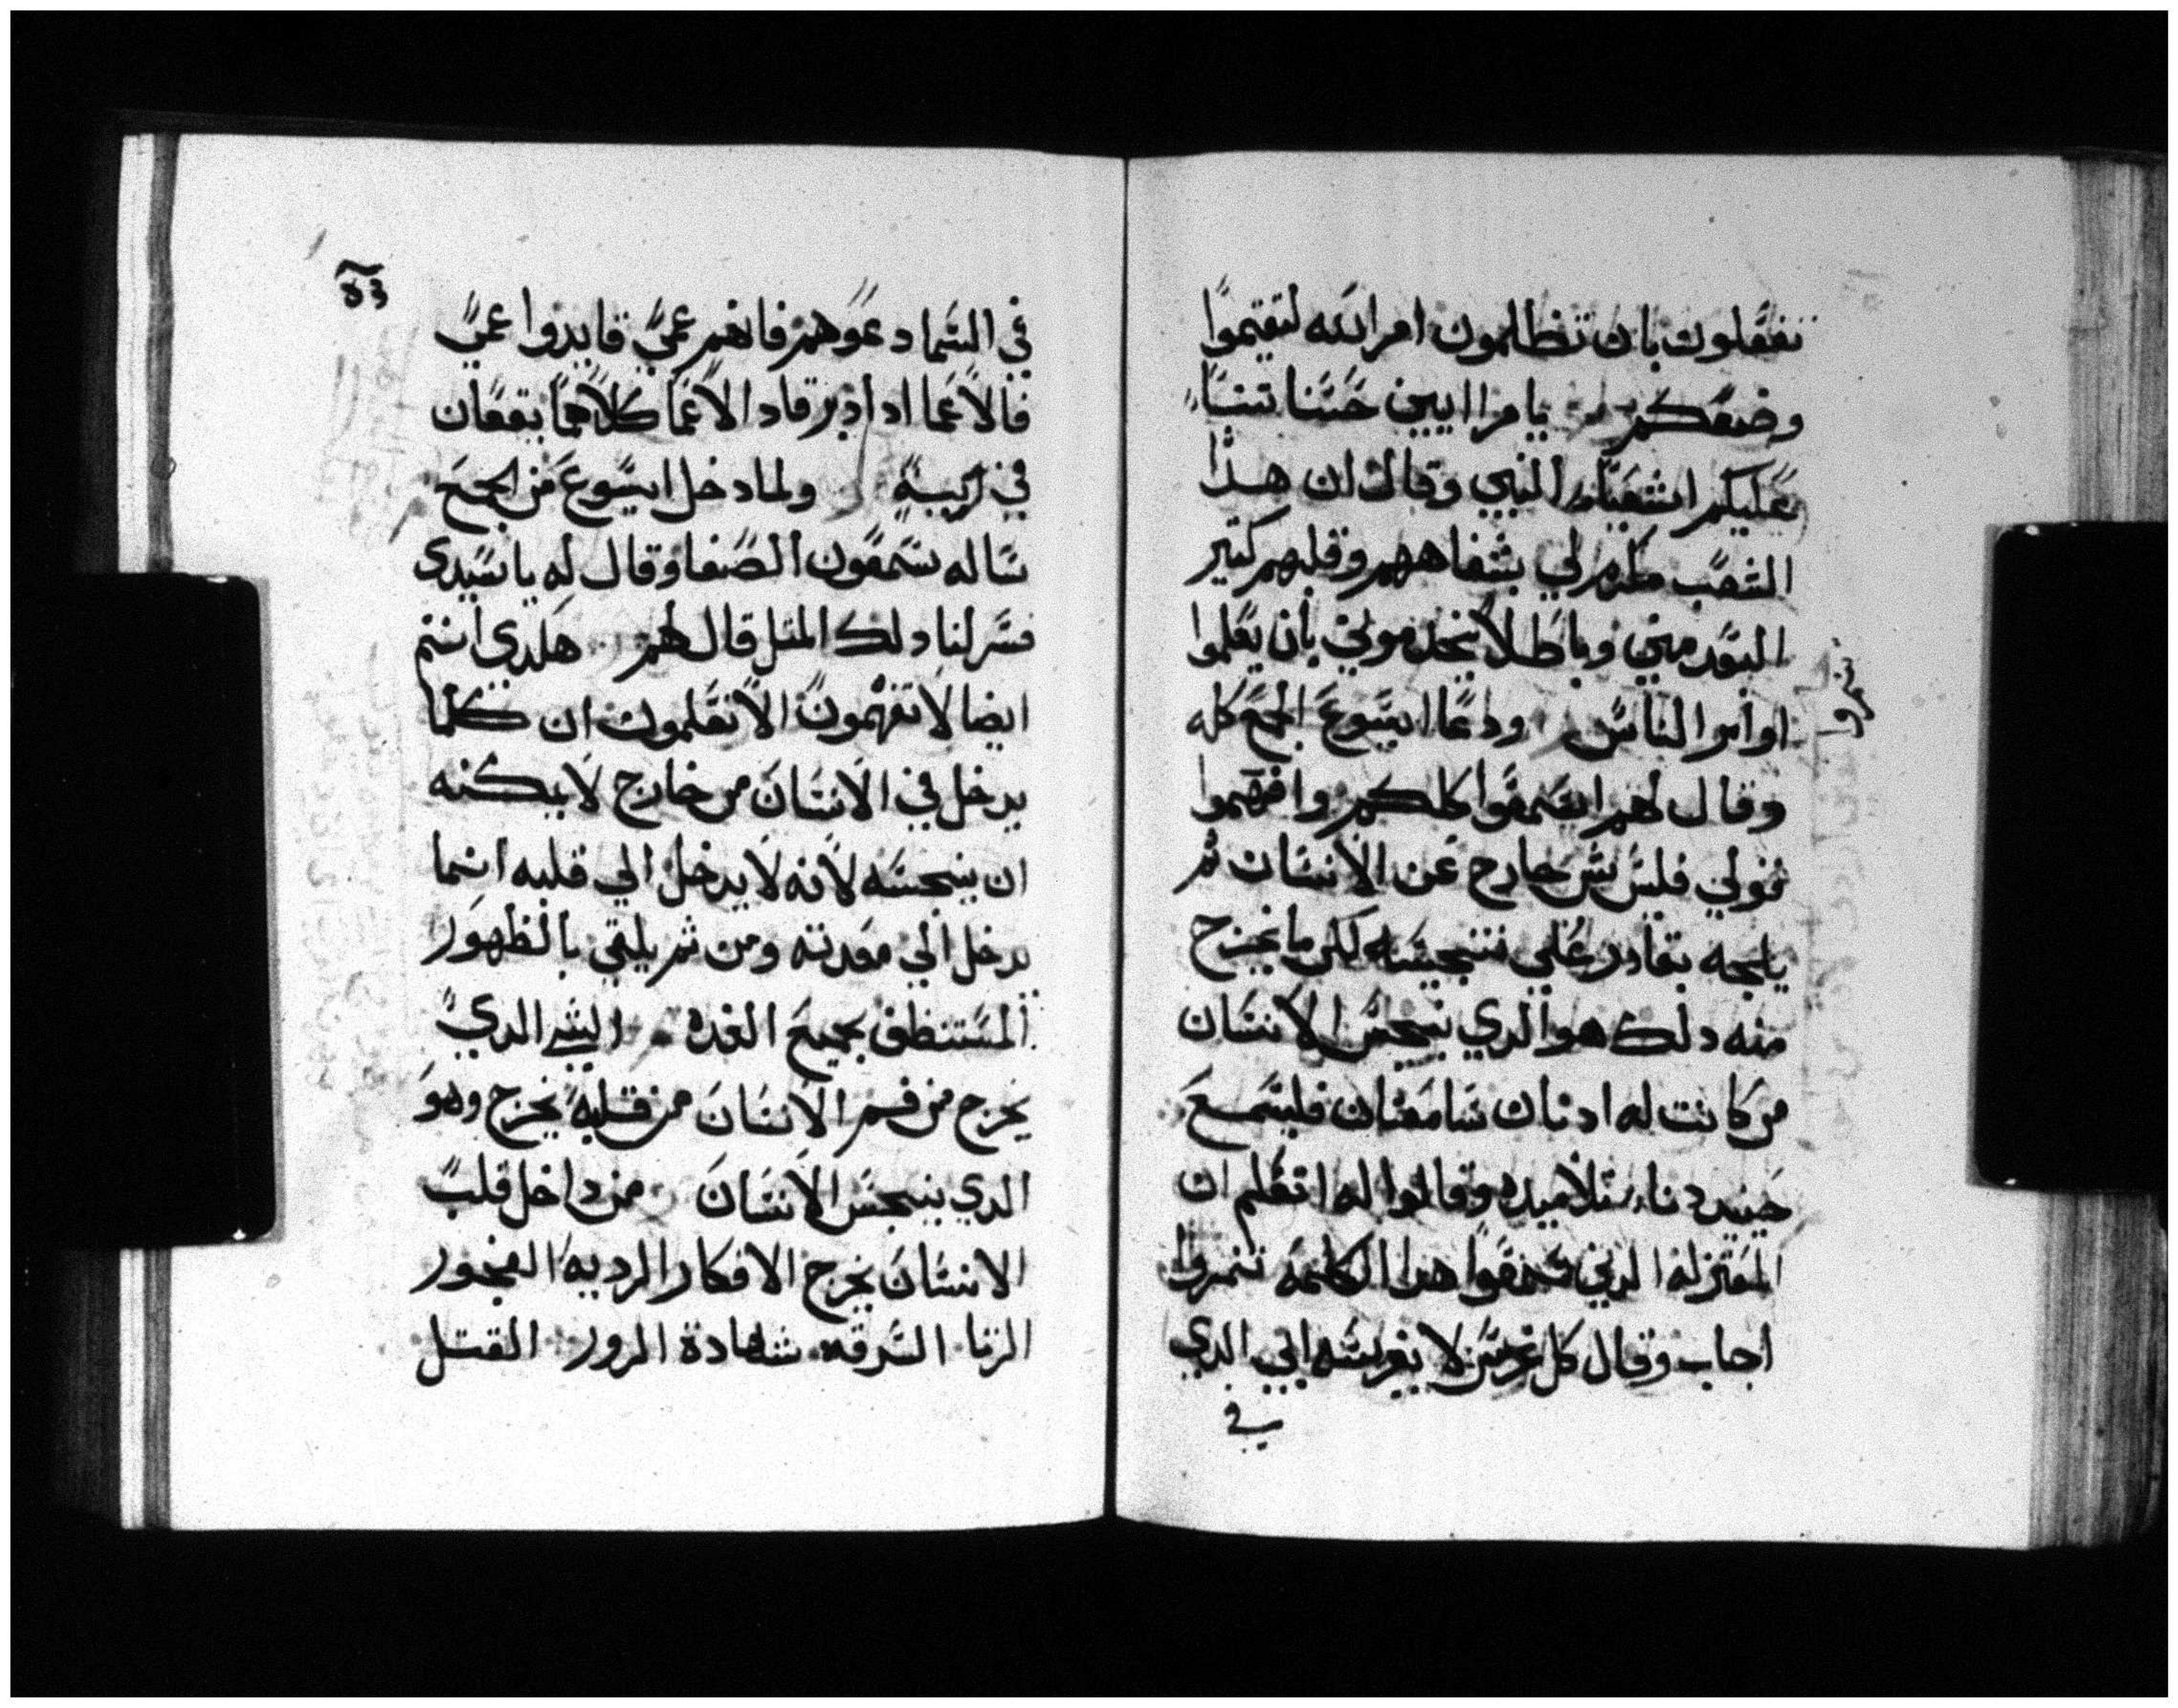 تفعلون بان تظلمون امر الله لتقيموا
وضعكم يا مراايين حسنا تنبا
عليكم اشعيا النبي وقال ان هدا
الشعب مكرم لي بشفاههم وقلبهم كتير
البعد مني وباطلا يخدموني بان يعلموا
اوامر الناس ودعا ايسوع الجمع كله
وقال لهم اسمعوا كلكم وافهموا
قولي فليس شي خارج عن الانسان ثم
يلجه بقادر علي تنجيسه لكن ما يخرج
منه دلك هو الدي ينجس الانسان
من كانت له ادنان سامعتان فليسمع
حينيد دنا تلاميده وقالوا له اتعلم ان
المعتزله الدين سمعوا هدا الكلمه تنمروا
اجاب وقال كل غرس لا يغرسه ابي الدي
في
في السما دعوهم فانهم عمي قايدوا عمي
فالاعما ادا قاد الاعما كلاهما يقعان
في زبيبة ولما دخل ايسوع من الجمع
ساله سمعون الصفا وقال له يا سيدي
فسر لنا دلك المتل قال لهم هلدي انتم
ايضا لا تفهمون الا تعلمون ان كلما
يدخل في الانسان من خارج لا يمكنه
ان ينجسه لانه لا يدخل الي قلبه انما
يدخل الي معدته ومن ثم يلقي بالظهور
المستنظف بجميع الغده الشي الدي
يخرج من فم الانسان من قلبه يخرج وهو
الدي ينجس الانسان من داخل قلب
الانسان يخرج الافكار الرديه الفجور
الزنا السرقه شهادة الزور القتل